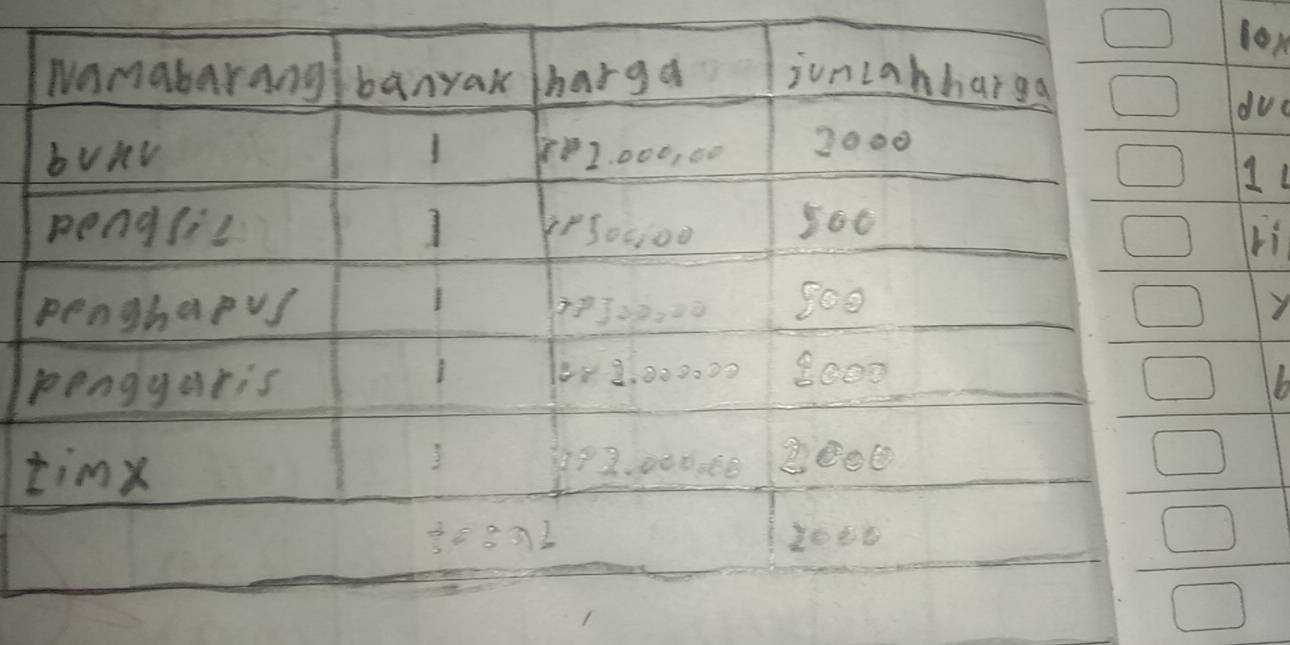 Namabarang banyak harga jumlahharga
buku 1 RP2.000,00 2000
pengsil 1 RP500,00 500
penghapus 1 RP500,00 500
penggaris 1 2000
timx 1 RP2.000,00 2000
total
10k
1 L
ri
y
b